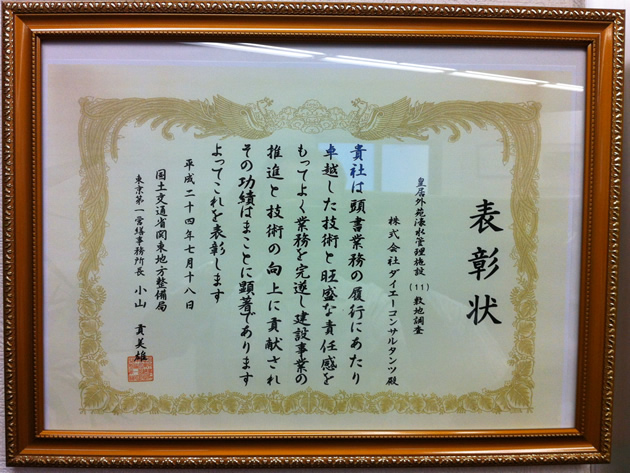 表彰状
皇居外苑濠水管理施設(11)敷地調査
株式会社ダイエーコンサルタンツ殿
貴社は頭書業務の履行にあたり
卓越した技術と旺盛な責任感を
もってよく業務を完遂し建設事業の
推進と技術の向上に貢献され
その功績はまことに顕著であります
よってこれを表彰します
平成二十四年七月十八日
国土交通省関東地方整備局
東京第一営繕事務所長 小山 貴美雄